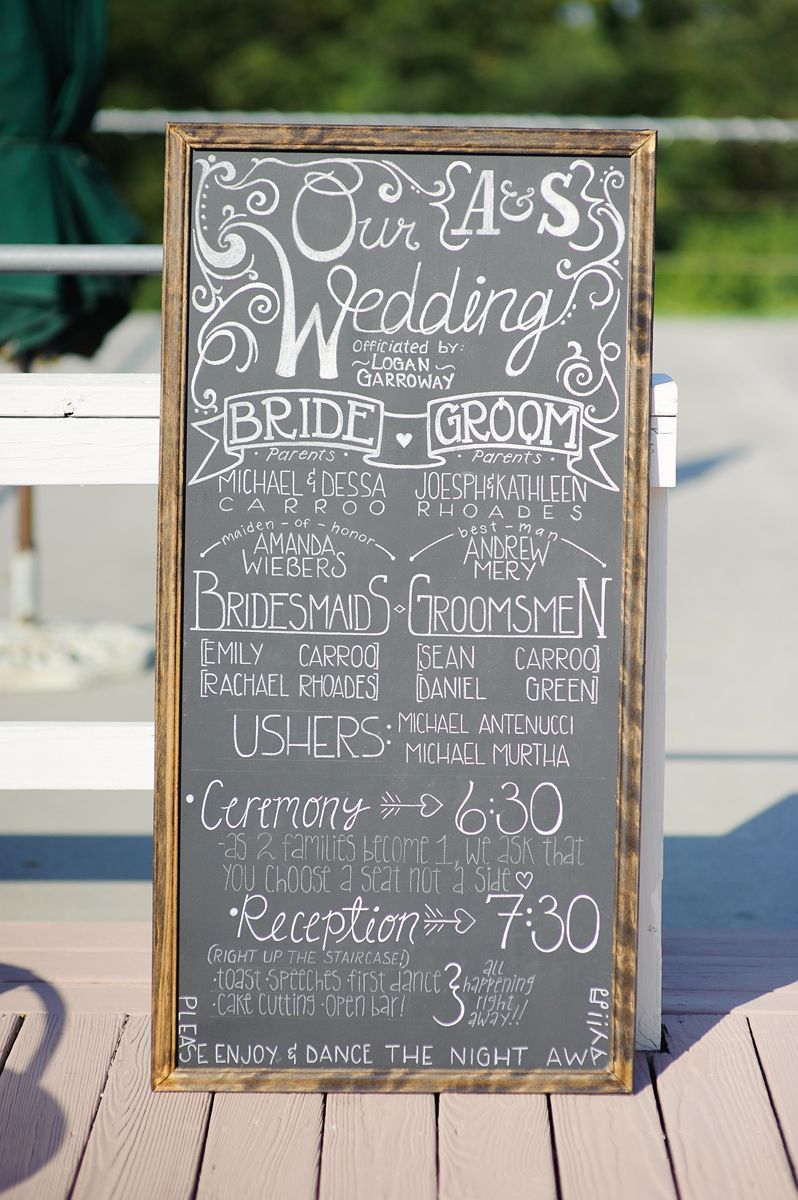 Our {A&S}
Wedding
Officiated by:
~LOGAN~
GARROWAY
BRIDE ♥ GROOM
Parents · · Parents ·
MICHAEL & DESSA JOESPH & KATHLEEN
CARROO RHOADES
maiden-of-honor best-man
AMANDA ANDREW
WIEBERS MERY
BRIDESMAIDS ⋄ GROOMSMEN
[EMILY CARROO] [SEAN CARROO]
[RACHAEL RHOADES] [DANIEL GREEN]
USHERS: MICHAEL ANTENUCCI
MICHAEL MURTHA
• Ceremony 6:30
-as 2 families become 1, we ask that
you choose a seat not a side ♡
• Reception 7:30
(RIGHT UP THE STAIRCASE!)
·toast·speeches·first dance
·cake cutting·open bar!
} all
happening
right
away!!
PLEASE ENJOY & DANCE THE NIGHT AWAY